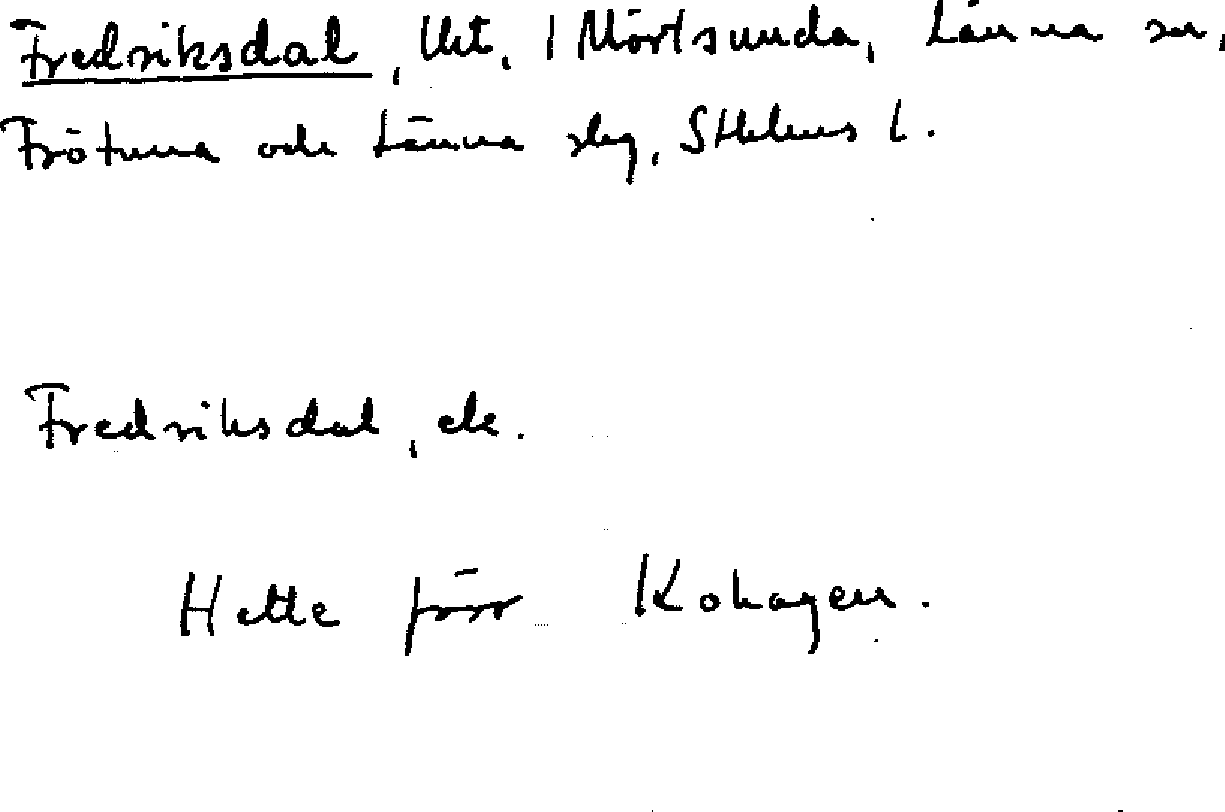 Fredriksdal, lht, 1 Mörtsunda, Länna sn,
Frötuna och Länna slg, Sthlms l.
Fredriksdal, de.
Hette förr Kohagen.